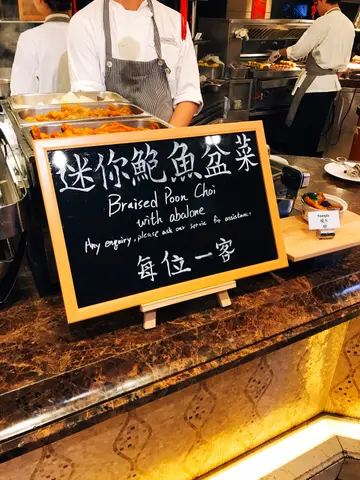 迷你鮑魚盆菜
Braised Poon Choi
with abalone
Any enquiry, please ask our service for assistance.
每位一客